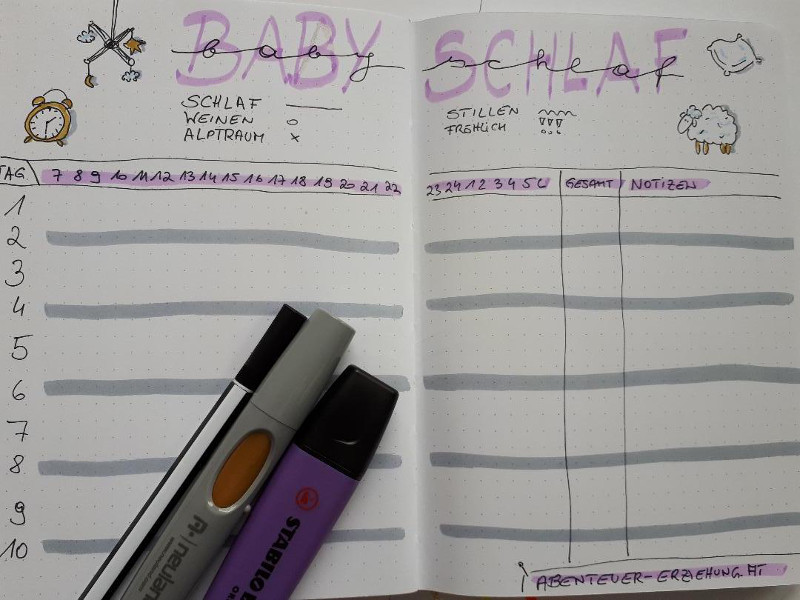 BABY
baby
SCHLAF ———
WEINEN o
ALPTRAUM x
TAG 7 8 9 10 11 12 13 14 15 16 17 18 19 20 21 22
1
2
3
4
5
6
7
8
9
10
SCHLAF
schlaf
STILLEN
FRÖHLICH
23 24 1 2 3 4 5 6 GESAMT NOTIZEN
ABENTEUER-ERZIEHUNG.AT
neuland
STABILO